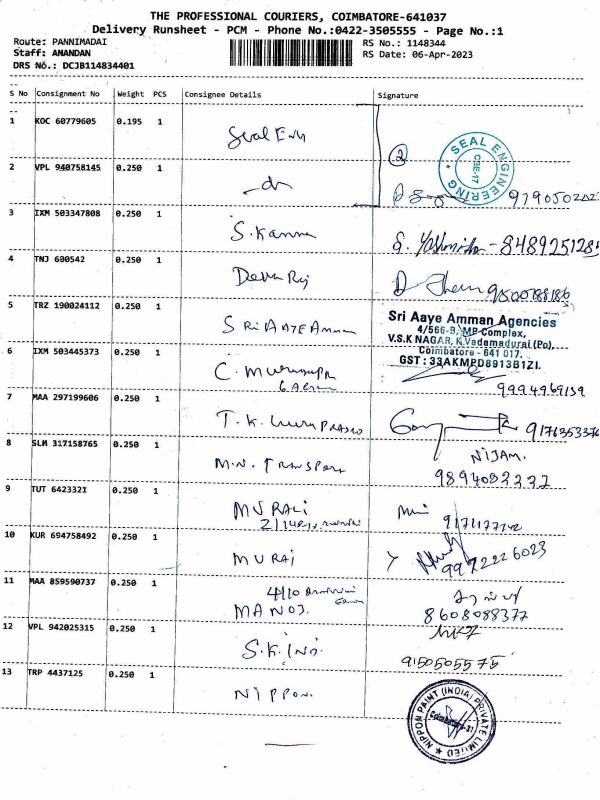 THE PROFESSIONAL COURIERS, COIMBATORE-641037
Delivery Runsheet - PCM - Phone No.:0422-3505555 - Page No.:1
Route: PANNIMADAI
RS No.: 1148344
Staff: ANANDAN
RS Date: 06-Apr-2023
DRS No.: DCJB114834401
S No Consignment No Weight PCS Consignee Details Signature
1 KOC 60779605 0.195 1
Seal Eng
2 SEAL ENGINEERING
CBE-17
2 VPL 940758145 0.250 1
3 IXM 503347808 0.250 1
S. Kannan
S. 8489251285
4 TNJ 600542 0.250 1
Deva Raj
D 9500788186
5 TRZ 190024112 0.250 1
SRI AAYE Amman
Sri Aaye Amman Agencies
4/566-B, MP Complex,
V.S.K NAGAR, K.Vadamadurai (Po),
Coimbatore - 641 017.
GST : 33AKMPD8913B1ZI.
6 IXM 503445373 0.250 1
C.
9994969159
7 MAA 297199606 0.250 1
T. K. PRASAD
9176353376
8 SLM 317158765 0.250 1
M.N. TRANSPORT
NIJAM.
9894082232
9 TUT 642332I 0.250 1
MURALI
10 KUR 694758492 0.250 1
MURAI
9972226023
11 MAA 859590737 0.250 1
4/10
MANOJ.
8608088377
12 VPL 942025315 0.250 1
S.K. IND.
9150505575
13 TRP 4437125 0.250 1
NIPPON.
NIPPON PAINT (INDIA) PRIVATE LIMITED
Coimbatore-37